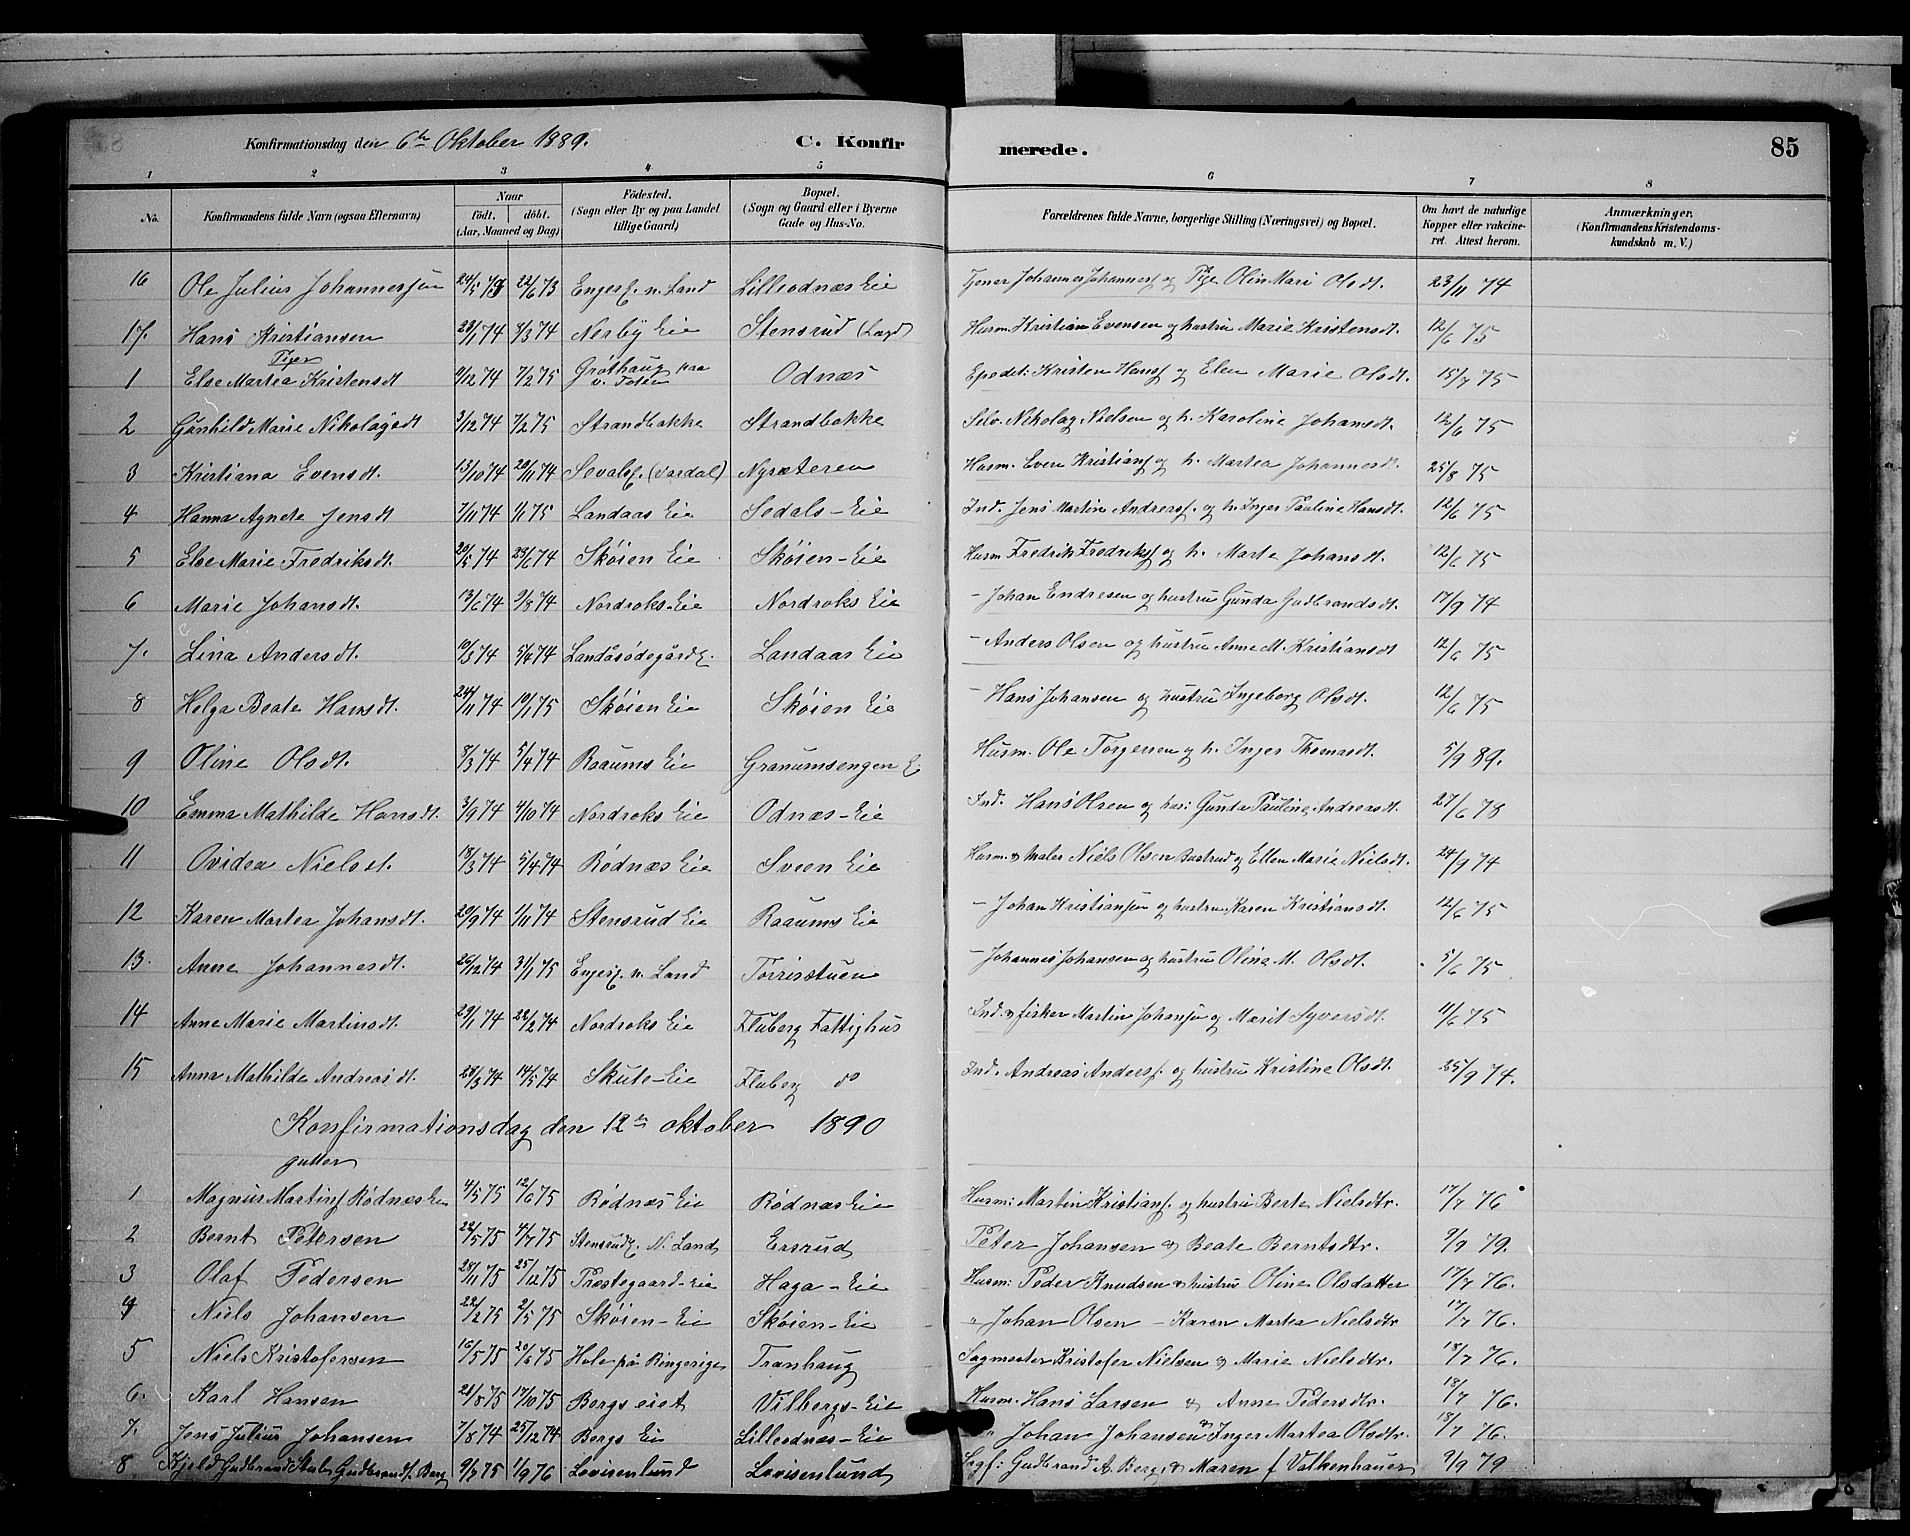 Konfirmationsdag den 6te Oktober 1889. C. Konfir merede. 85
1 2 3 4 5 6 7 8
No. Konfirmandens fulde Navn (ogsaa Efternavn) Naar født, døbt. (Aar, Maaned og Dag) Fødested. (Sogn eller By og paa Landet tillige Gaard) Bopæl. (Sogn og Gaard eller i Byerne Gade og Hus-No. Forældrenes fulde Navne, borgerlige Stilling (Næringsvei) og Bopæl. Om havt de naturlige Kopper eller vakcineret. Attest herom. Anmærkninger. (Konfirmandens Kristendomskundskab m. V.)
16 Ole Julius Johannessen 24/5 73 22/6 73 Engers. n. Land Lilleodnæs Eie Tjener Johannes Johanness. og Pige Olin Mari Olsdt. 23/11 74
17. Hans Kristiansen 28/1 74 8/3 74 Nerby Eie Stensrud (Lagd) Husm. Kristian Evensen og hustru Marie Kristensdt. 12/6 75
Piger
1 Else Martea Kristensdt 9/12 74 7/2 75 Grøthaug paa v. Toten Odnæs Kristen Hans. og Elen Marie Olsdt. 15/7 75
2 Gunhild Marie Nikolagsdt 3/12 74 7/2 75 Strandbakke Strandbakke Selv. Nikolag Nielsen og h. Karoline Johansdt. 12/6 75
3 Kristiana Evensdt. 13/10 74 20/11 74 (Vardal) Nysæteren Husm. Even Kristians. og h. Martea Johannesdt. 25/8 75
4 Hanna Agnete Jensdt 7/11 74 1/1 75 Landaas Eie Sedals-Eie Ind. Jens Martin Anderss. og h. Inger Pauline Hansdt. 12/6 75
5 Else Marie Fredriksdt. 20/5 74 23/6 74 Skøien Eie Skøien-Eie Husm Fredrik Fredriks. og h. Marte Johansdt. 12/6 75
6 Marie Johansdt. 13/6 74 2/8 74 Nordroks-Eie Nordroks Eie - Johan Endresen og hustru Gunda Gudbrandsdt. 17/9 74
7. Lina Andersdt. 10/3 74 5/4 74 Landåsødegårde. Landaas Eie - Anders Olsen og hustru Anne M. Kristiansdt 12/6 75
8 Helga Beate Hansdt. 24/11 74 10/1 75 Skøien Eie Skøien Eie - Hans Johansen og hustru Ingeborg Olsdt. 12/6 75
9 Oline Olsdt. 8/3 74 5/4 74 Raaums Eie Granumsengen E. Husm. Ole Torgersen og h. Inger Thomasdt. 5/9 89.
10 Emma Mathilde Hansdt. 3/9 74 4/10 74 Nordroks Eie Odnæs-Eie Ind. Hans Olsen og hus: Gunda Pauline Andersdt. 27/6 78
11 Ovidea Nielsdt. 18/3 74 5/4 74 Rødnæs Eie Sveen Eie Husm. & Maler Niels Olsen Bustrud og Ellen Marie Nielsdt. 24/9 74
12 Karen Martea Johansdt. 29/9 74 1/11 74 Stensrud Eie Raaums Eie - Johan Kristiansen og hustru Karen Kristiansdt. 12/6 75
13. Anne Johannesdt. 26/12 74 31/1 75 Engers. n. Land Torrisstuen - Johannes Johansen og hustru Oline M. Olsdt. 5/6 75
14 Anne Marie Martinsdt. 29/1 74 22/2 74 Nordroks Eie Fluberg Fattighus Ind. & fisker Martin Johansen og Marit Syversdt. 11/6 75
15 Anna Mathilde Andreasdt. 28/3 74 14/5 74 Skute-Eie Fluberg do Ind. Andreas Anders. og hustru Kristine Olsdt. 25/9 74.
Konfirmationsdag den 12te oktober 1890
gutter
1 Magnus Martins. Rødnæs Eie 4/5 75 12/6 75 Rødnæs Eie Rødnæs Eie Husm: Martin Kristians. og hustru Berte Nielsdtr. 17/7 76
2 Bernt Petersen 22/5 75 4/7 75 Stensrud. N. Land Ersrud Peter Johansen & Beate Berntsdtr. 9/9 79.
3 Olaf Pedersen 28/11 75 25/12 75 Prestegaard-Eie Haga-Eie Husm: Peder Knudsen & hustru Oline Olsdatter 17/7 76.
4 Niels Johansen 22/2 75 2/5 75 Skøien-Eie Skøien-Eie " Johan Olsen - Karen Martea Nielsdtr 17/7 76.
5 Niels Kristofersen 16/5 75 20/6 75 Hole på Ringerige Tranhaug Sagmester Kristofer Nielsen & Marie Nielsdtr. 18/7 76.
6. Karl Hansen 28/8 75 17/10 75 Bergs eiet Vilbergs-Eie Husm. Hans Larsen & Anne Pedersdtr. 18/7 76.
7. Jens Julius Johansen 7/8 74 25/12 74 Bergs Eie Lilleodnæs-Eie " Johan Johansen & Inger Martea Olsdtr. 18/7 76.
8 Kjeld Gudbrand Stub Gudbrands. Berg 9/7 75 1/9 76 Lovisenlund Lovisenlund Gudbrand A. Berg & Maren f. Valkenhauer 9/9 79